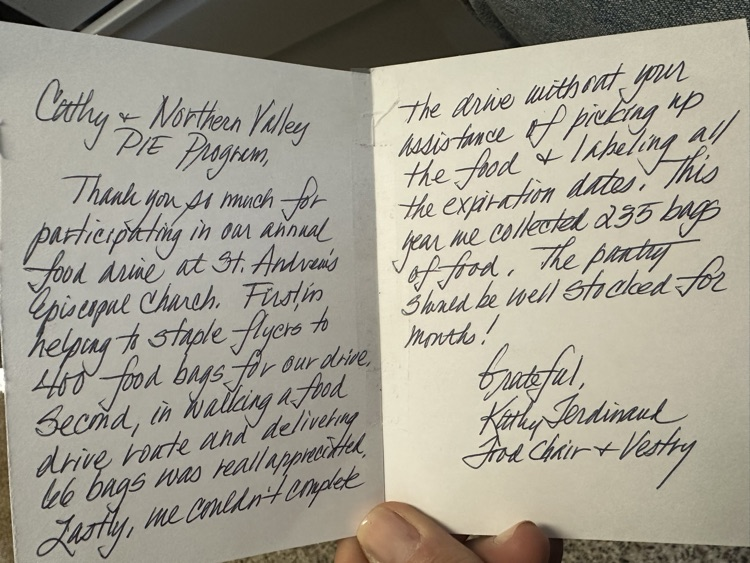 Cathy + Northern Valley
PIE Program,
Thank you so much for
participating in our annual
food drive at St. Andrew's
Episcopal Church. First, in
helping to staple flyers to
400 food bags for our drive.
Second, in walking a food
drive route and delivering
66 bags was really appreciated.
Lastly, we couldn't complete
the drive without your
assistance of picking up
the food + labeling all
the expiration dates. This
year we collected 235 bags
of food. The pantry
should be well stocked for
months!
Grateful,
Kathy Ferdinand
Food Chair + Vestry